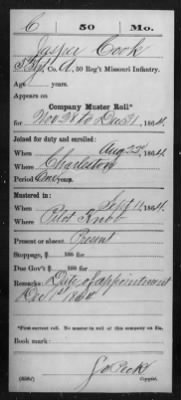 C 50 Mo.
Jasper Cook
Co. A, 50 Reg't Missouri Infantry.
Age years.
Appears on
Company Muster Roll*
for Nov 28 to Dec 31, 1864.
Joined for duty and enrolled:
When Aug 23, 1864.
Where Charleston
Period One years.
Mustered in:
When Sept 11, 1864.
Where Pilot Knob
Present or absent Present
Stoppage, $ 100 for
Due Gov't $ 100 for
Remarks: Date of appointment
Dec 1st 1864
*First muster roll. No muster in roll of this company on file.
Book mark:
Copyist.